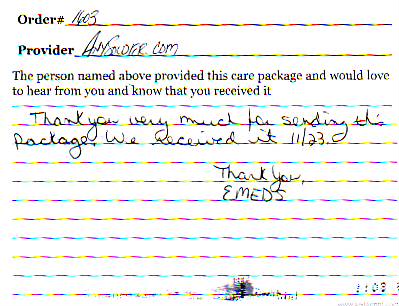 Order# 1603
Provider AnySoldier.com
The person named above provided this care package and would love
to hear from you and know that you received it
Thankyou very much for sending this
package. We received it 11/23.
Thank You,
EMEDS